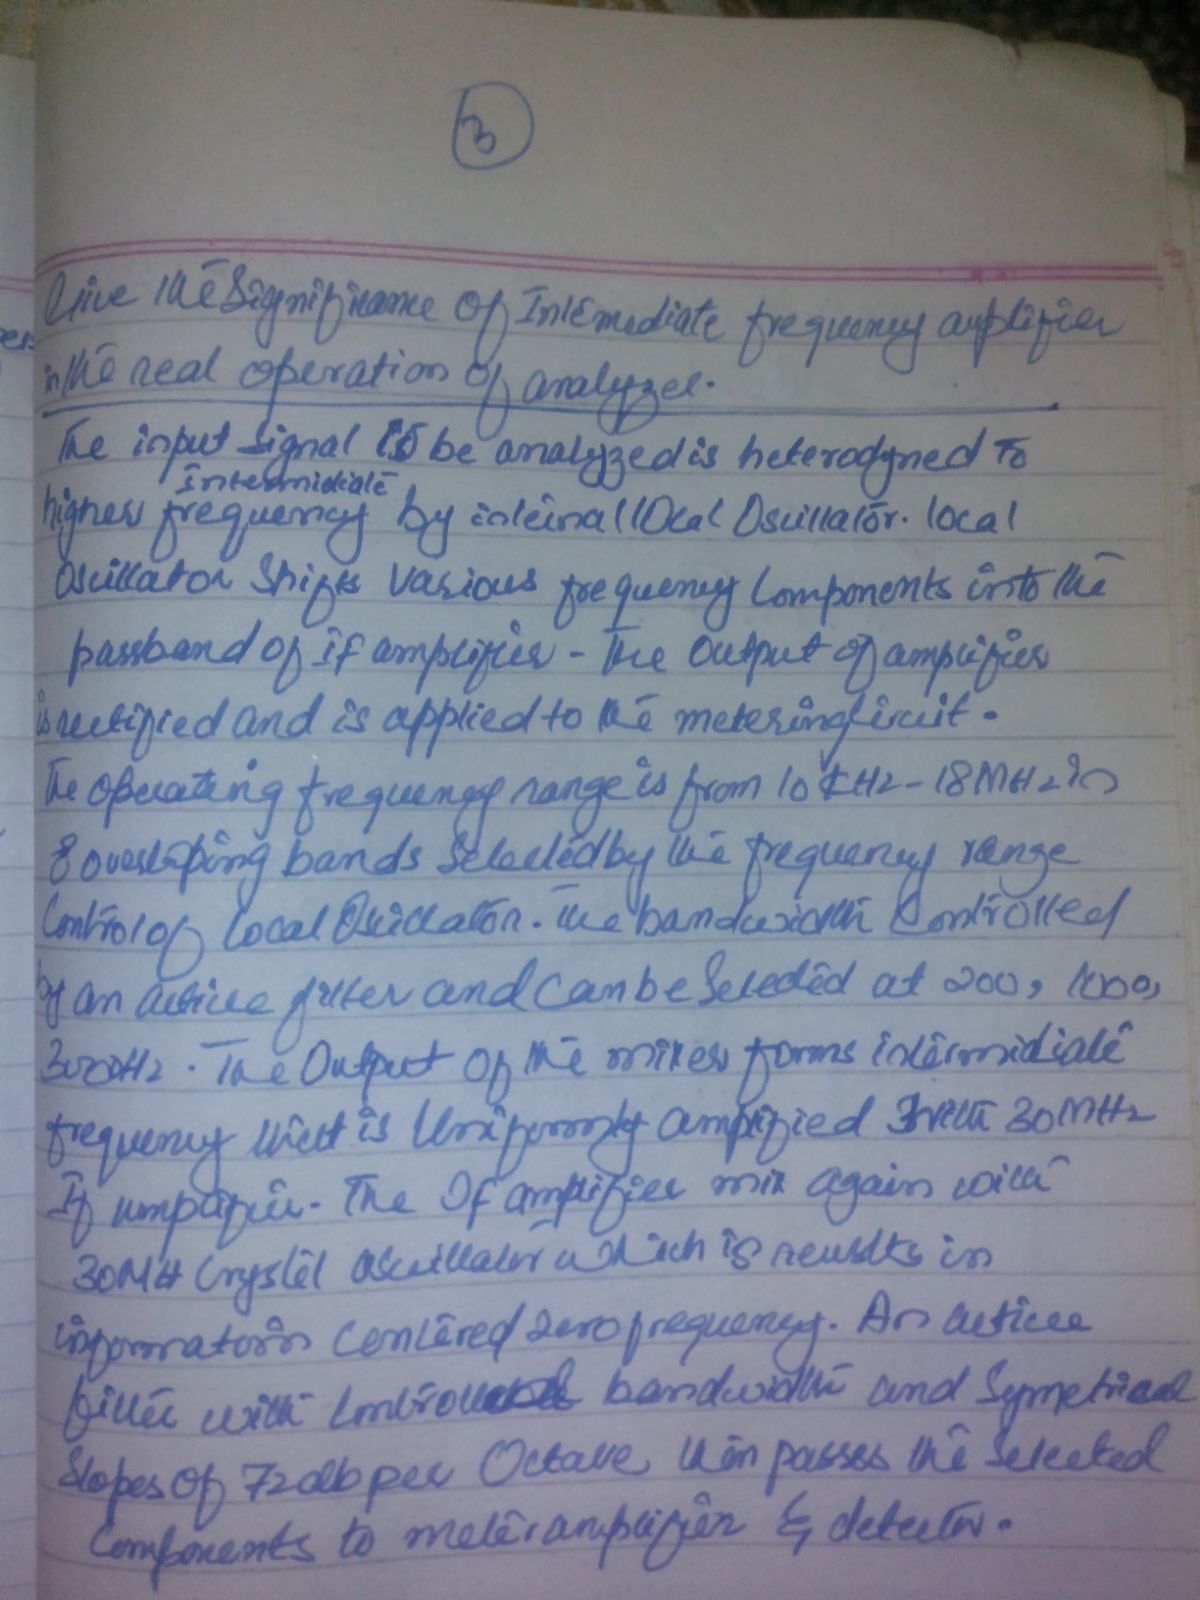 3
Give the Significance of Intemediate frequency amplifier
in the real operation of analyzer.
The input signal to be analyzed is heterodyned to
Intermidiate
higher frequency by internal local Oscillator. local
Oscillator Shifts Various frequency Components into the
passband of If amplifier - The Output of amplifier
is rectified and is applied to the metering Circuit.
The operating frequency range is from 10 KHz - 18 MHz in
8 overlaping bands Selected by the frequency range
Control of local Oscillator. The bandwidth Controlled
by an active filter and can be Selected at 200, 1000,
3000Hz. The Output of the mixer forms intermidiate
frequency that is Uniformly amplified with 30MHz
If amplifier. The If amplifier mix again with
30MH Crystel Oscillator which is results in
information Centered zero frequency. An active
filter with Controlled bandwidth and Symetrical
Slopes of 72db per Octave then passes the Selected
Components to meter amplifier & detector.